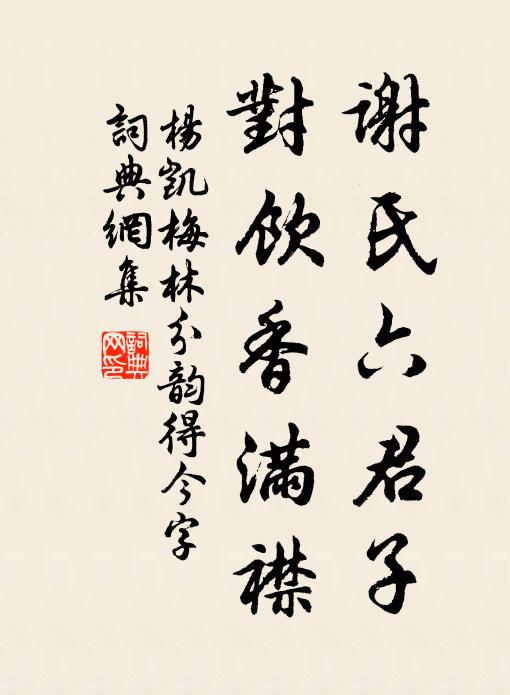 谢氏六君子
對飲香满襟
楊凱梅林分韵得今字
詞典網集
詞典网印